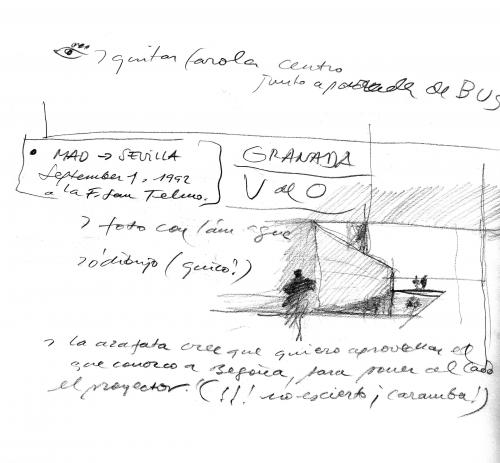 > quitar farola centro
junto a parada de BUS
• MAD → SEVILLA
September 1, 1992
a la F. San Telmo.
GRANADA
V del O
> foto con lám agua
> ó dibujo (quico!)
> la azafata cree que quiero aprovechar el
que conozco a Begoña, para poner al lado
el proyector. (!!! no es cierto ¡caramba!)